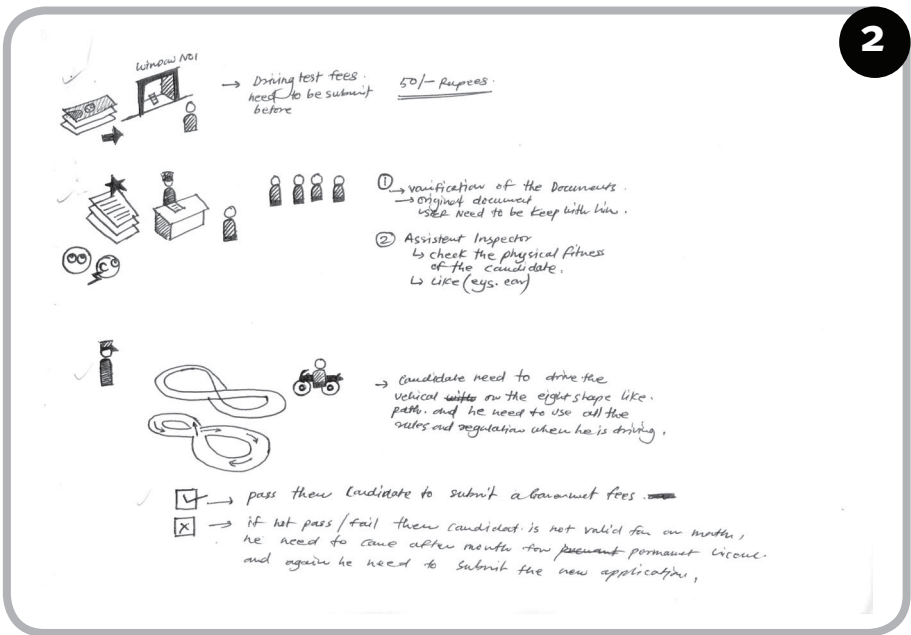 2
Window No1
→ Driving test fees.
need to be submit
before
50/- Rupees.
① → varification of the Documents.
→ original document
user need to be keep with him.
② Assistent Inspector
↳ check the physical fitness
of the candidate.
↳ like (eys. ear)
→ Candidate need to drive the
vehical on the eight shape like.
path. and he need to use all the
rules and regulation when he is driving.
→ pass then Candidate to submit a fees.
→ if not pass/fail then candidat is not valid for on month,
he need to come after month for permanet licence.
and again he need to submit the new application.